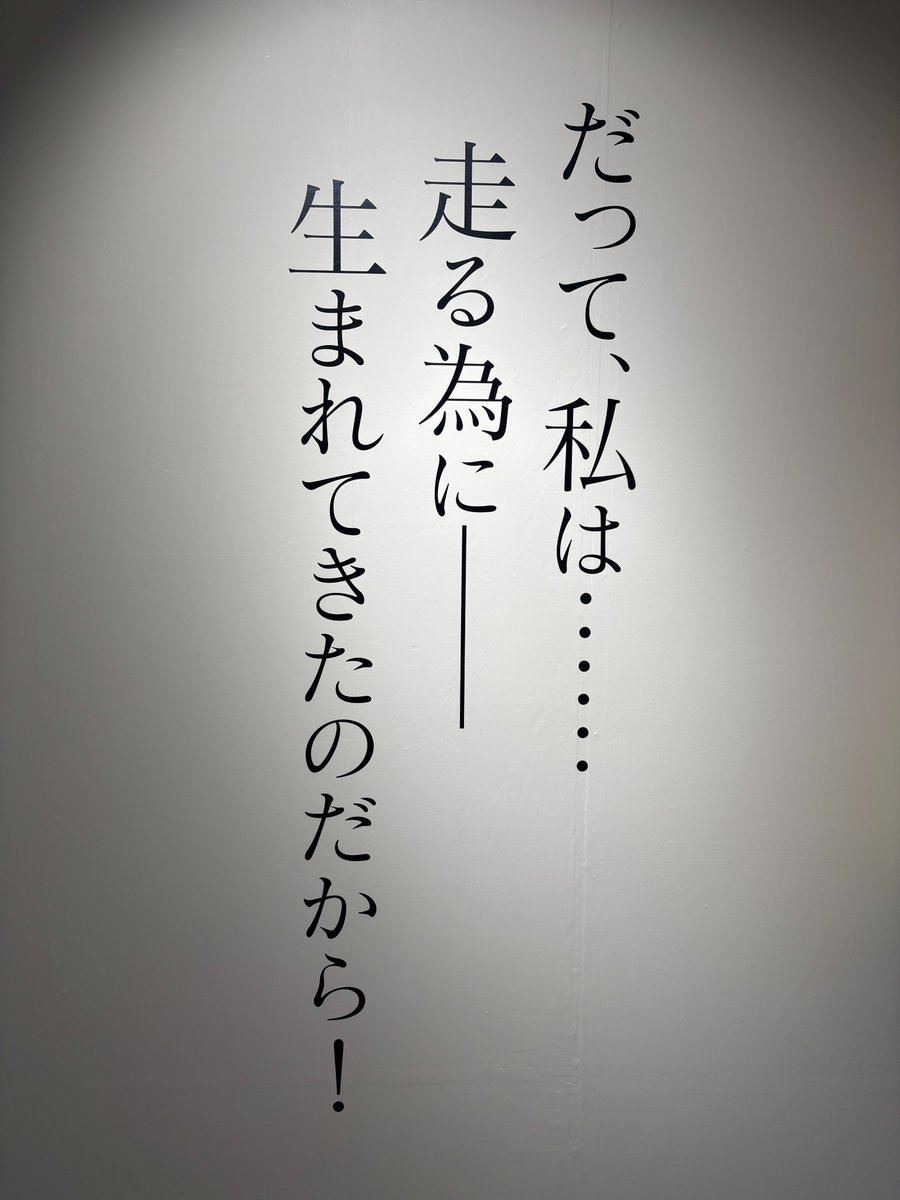 だって、私は……
走る為に――
生まれてきたのだから！